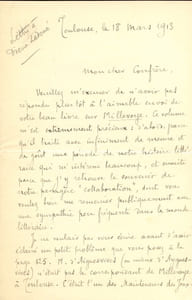 Toulouse, le 18 mars 1913
Mon cher Confrère,
Veuillez m'excuser de n'avoir pas
répondu plus tôt à l'aimable envoi de
votre beau livre sur Millevoye. Ce volume
m'est extrêmement précieux : d'abord, parce
qu'il traite avec infiniment de science et
de goût une période de notre histoire litté-
raire qui m'intéresse beaucoup, et ensuite
parce que j'y retrouve le souvenir de
notre "collaboration", dont vous
voulez bien me remercier publiquement avec
une sympathie peu fréquente dans le monde
littéraire.
Je ne voulais pas vous écrire avant d'avoir
un petit problème que vous posez à la
page 125. M. d'Aiguesvives (ou même d'Aigues-
vives) n'était pas le correspondant de Millevoye
à Toulouse. C'était l'un des Mainteneurs des Jeux